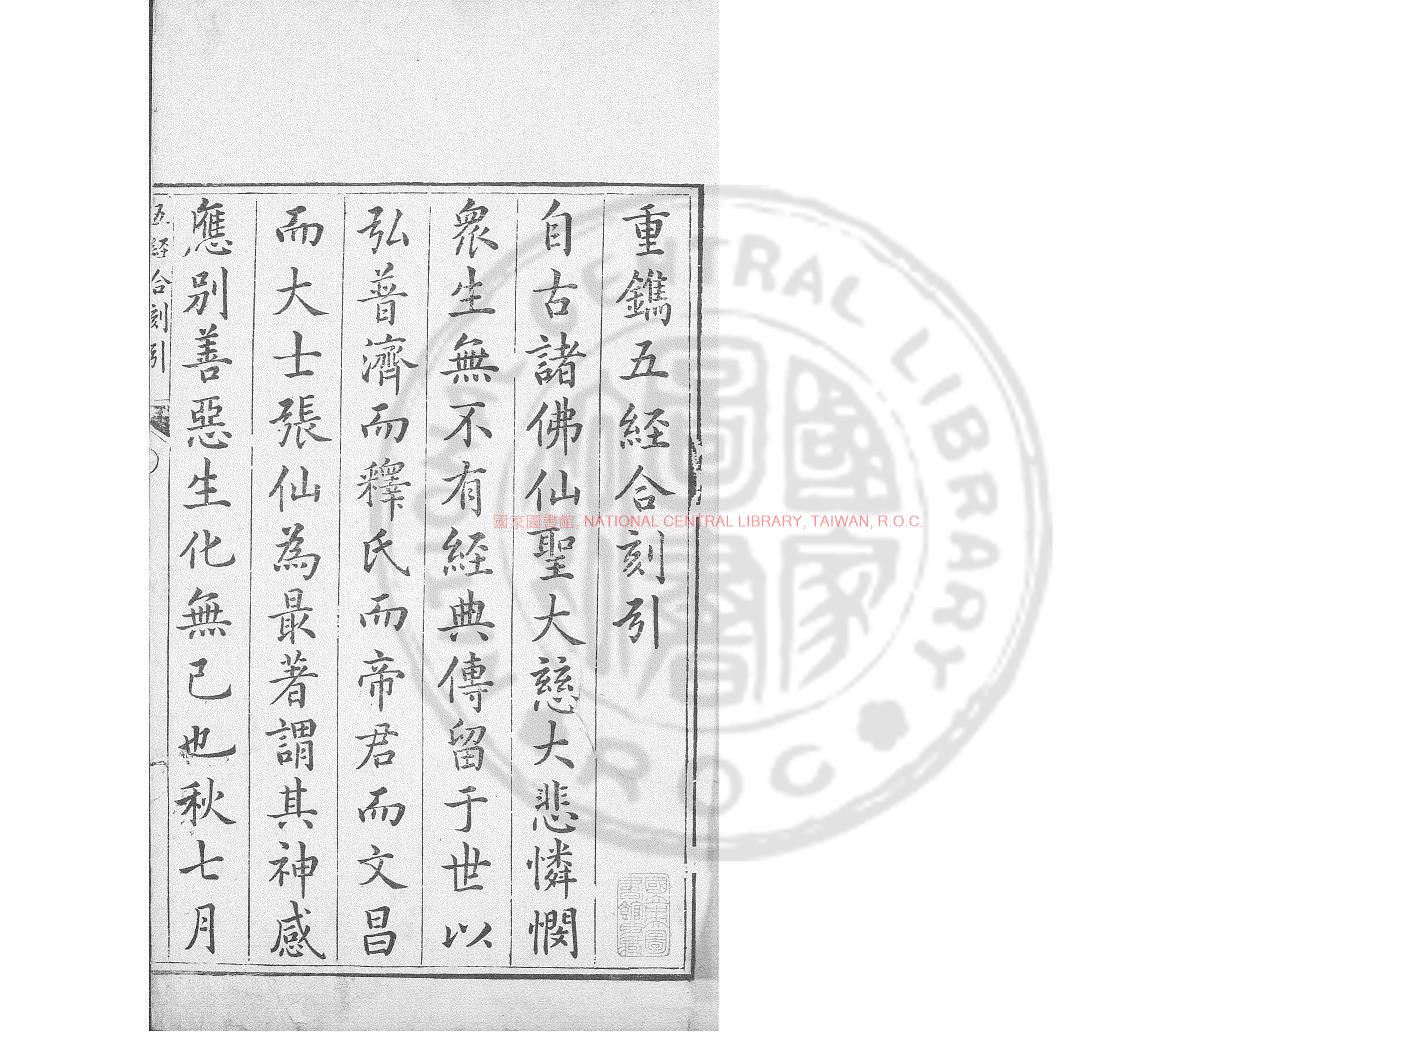 重鐫五經合刻引
自古諸佛仙聖大慈大悲憐憫
衆生無不有經典傳留于世以
弘普濟而釋氏而帝君而文昌
而大士張仙為最著謂其神感
應別善惡生化無已也秋七月
五經合刻引
國家圖書館, NATIONAL CENTRAL LIBRARY, TAIWAN, R.O.C.
NATIONAL CENTRAL LIBRARY
R.O.C
國家圖書館